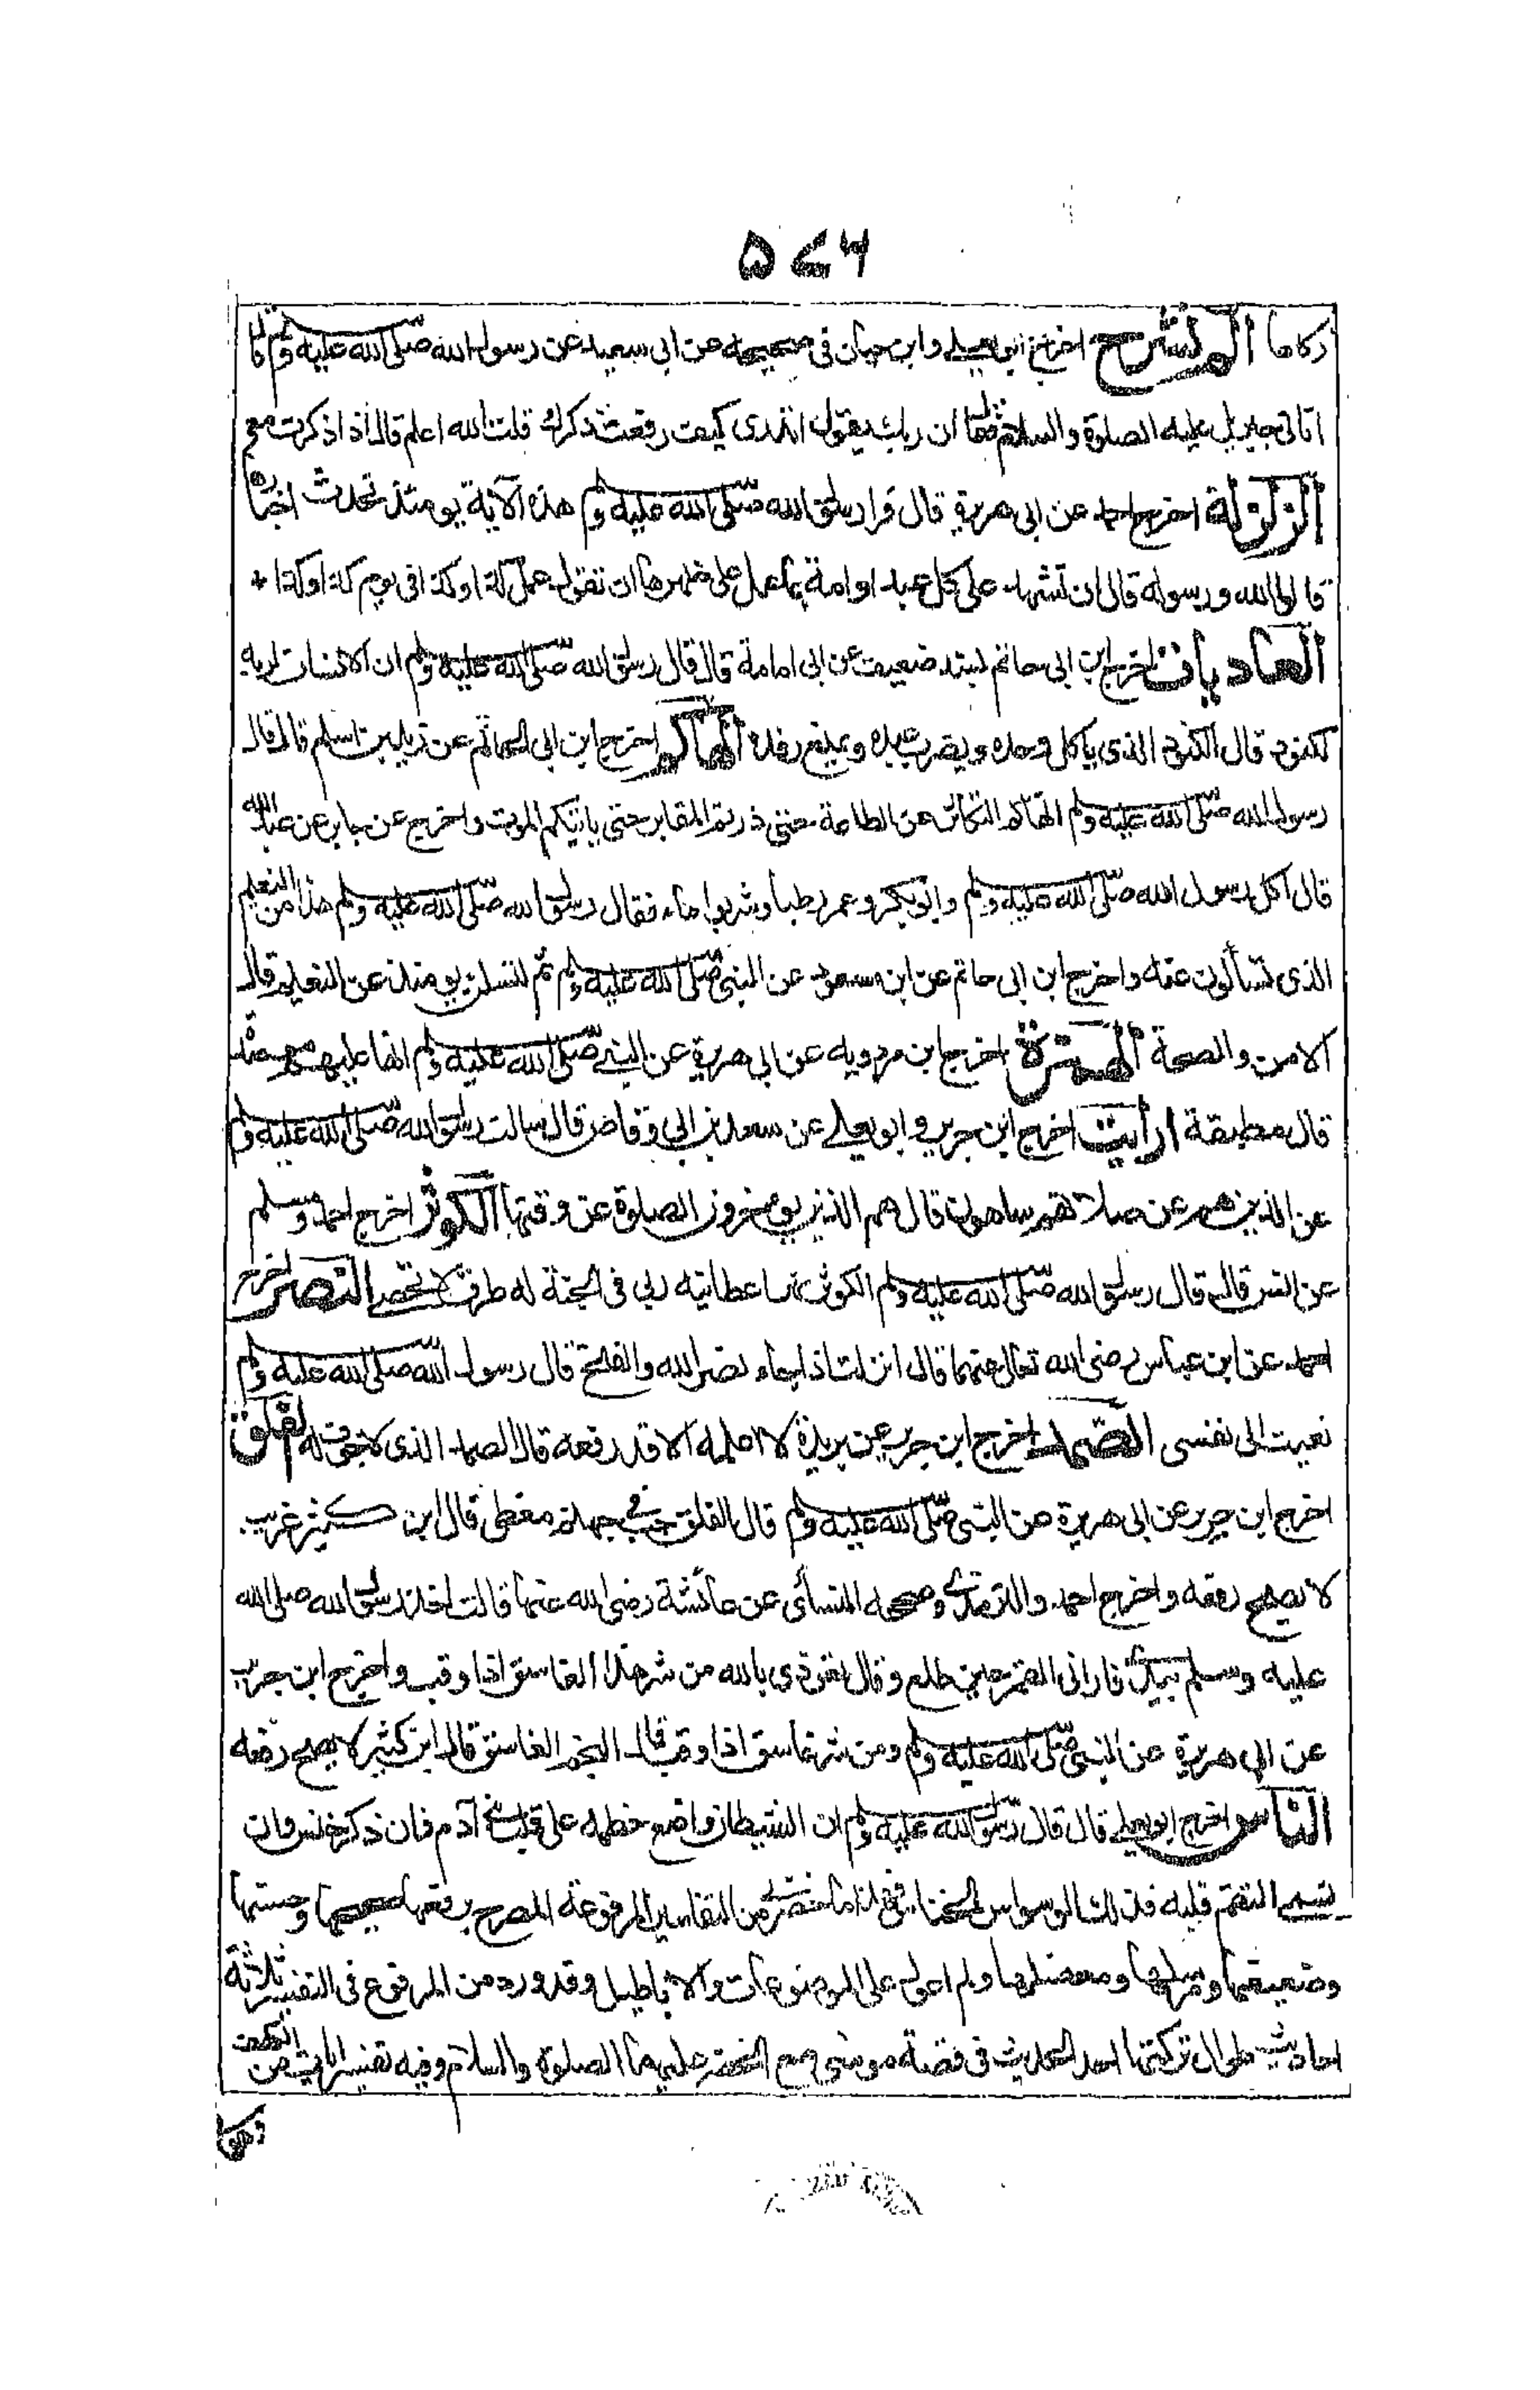 ۵۷۶
زكاها الم نشرح اخرج ابو يعلى وابن حبان فى صحيحه عن ابى سعيد عن رسول الله صلى الله عليه وسلم قال
اتانى جبريل عليه الصلوة والسلام فقال ان ربك يقول اتدرى كيف رفعت ذكرك قلت الله اعلم قال اذا ذكرت معى
الزلزلة اخرج احمد عن ابى هريرة قال قرا رسول الله صلى الله عليه وسلم هذه الآية يومئذ تحدث اخبارها
قالوا الله ورسوله قال ان تشهد على كل عبد او امة بما عمل على ظهرها ان تقول عمل كذا وكذا فى يوم كذا وكذا *
العاديات اخرج ابن ابى حاتم بسند ضعيف عن ابى امامة قال قال رسول الله صلى الله عليه وسلم ان الانسان لربه
لكنود قال الكنود الذى ياكل وحده ويضرب عبده ويمنع رفده الهاكم اخرج ابن ابى الحاتم عن زيد بن اسلم قال قال
رسول الله صلى الله عليه وسلم الهاكم التكاثر عن الطاعة حتى زرتم المقابر حتى ياتيكم الموت واخرج عن جابر عن عبد الله
قال اكل رسول الله صلى الله عليه وسلم وابوبكر وعمر رطبا وشربوا ماء فقال رسول الله صلى الله عليه وسلم هذا من النعيم
الذى تسألون عنه واخرج ابن ابى حاتم عن ابن مسعود عن النبى صلى الله عليه وسلم ثم لتسئلن يومئذ عن النعيم قال
الامن والصحة الهمزة اخرج ابن مردويه عن ابى هريرة عن النبى صلى الله عليه وسلم انها عليهم مؤصدة
قال مطبقة ارأيت اخرج ابن جرير وابو يعلى عن سعد بن ابى وقاص قال سالت رسول الله صلى الله عليه وسلم
عن الذين هم عن صلاتهم ساهون قال هم الذين يؤخرون الصلوة عن وقتها الكوثر اخرج احمد ومسلم
عن انس قال قال رسول الله صلى الله عليه وسلم الكوثر نهر اعطانيه ربى فى الجنة له طرق لا تحصى النصر اخرج
احمد عن ابن عباس رضى الله تعالى عنهما قال لما نزلت اذا جاء نصر الله والفتح قال رسول الله صلى الله عليه وسلم
نعيت الى نفسى الصمد اخرج ابن جرير عن بريدة لا اعلمه الا قد رفعه قال الصمد الذى لا جوف له الفلق
اخرج ابن جرير عن ابى هريرة عن النبى صلى الله عليه وسلم قال الفلق جب فى جهنم مغطى قال ابن كثير غريب
لا يصح رفعه واخرج احمد والترمذى وصححه النسائى عن عائشة رضى الله عنها قالت اخذ رسول الله صلى الله
عليه وسلم بيدى فارانى القمر حين طلع وقال تعوذى بالله من شر هذا الغاسق اذا وقب واخرج ابن جرير
عن ابى هريرة عن النبى صلى الله عليه وسلم ومن شر غاسق اذا وقب قال النجم الغاسق قال ابن كثير لا يصح رفعه
الناس اخرج ابو يعلى قال قال رسول الله صلى الله عليه وسلم ان الشيطان واضع خطمه على قلب ابن آدم فان ذكر خنس وان
نسى التقم قلبه فذلك الوسواس الخناس فهذا ما حضرنى من التفاسير المرفوعة المصرح برفعها صحيحها وحسنها
وضعيفها ومرسلها ومعضلها ولم اعول على الموضوعات والاباطيل وقد ورد من المرفوع فى التفسير ثلاثة
احاديث طوال تركتها احد الحديث فى قصة موسى مع الخضر عليهما الصلوة والسلام وفيه تفسير آيات من الكهف
وهو